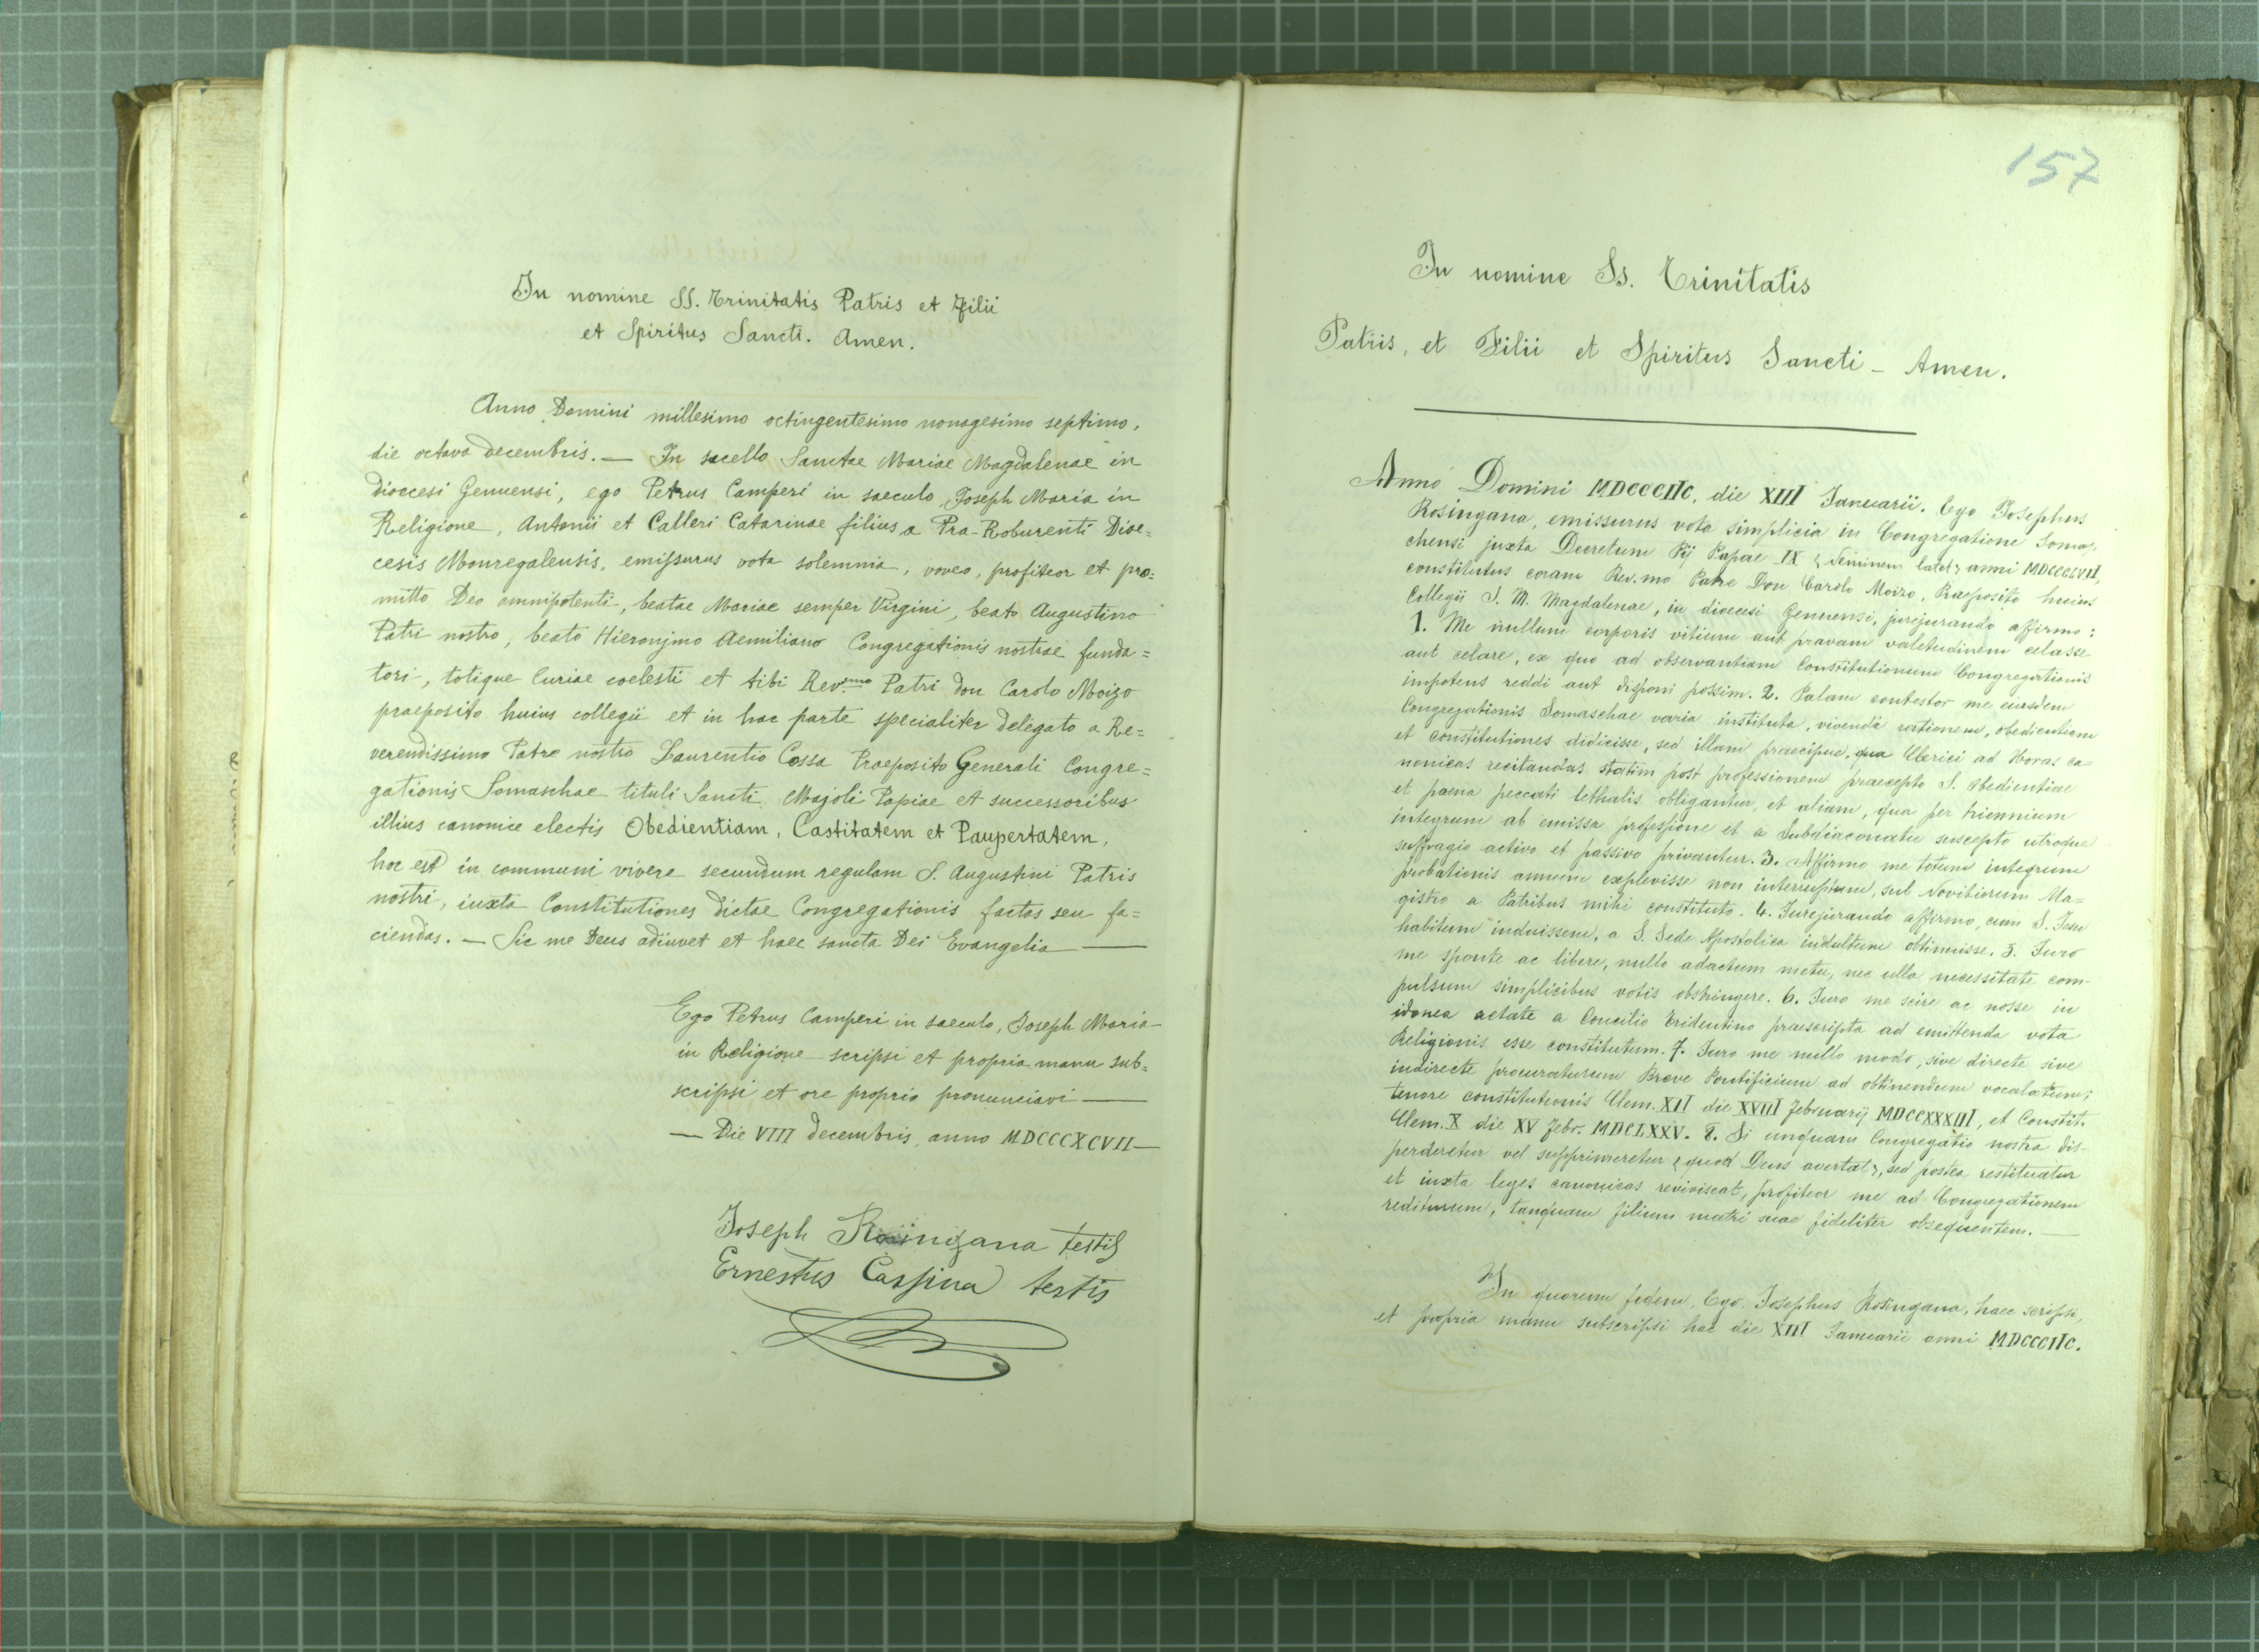 In nomine SS. Trinitatis Patris et Filii
et Spiritus Sancti. Amen.
Anno Domini millesimo octingentesimo nonagesimo septimo,
die octava decembris. — In sacello Sanctae Mariae Magdalenae in
dioecesi Genuensi, ego Petrus Camperi in saeculo, Joseph Maria in
Religione, Antonii et Calleri Catarinae filius a Pra-Roburenti Dioe=
cesis Monregalensis, emissurus vota solemnia, voveo, profiteor et pro=
mitto Deo omnipotenti, beatae Mariae semper Virgini, beato Augustino
Patri nostro, beato Hieronymo Aemiliano Congregationis nostrae funda=
tori, totique Curiae coelesti et tibi Rev.mo Patri don Carolo Moizo
praeposito huius collegii et in hac parte specialiter delegato a Re=
verendissimo Patre nostro Laurentio Cossa Praeposito Generali Congre=
gationis Somaschae tituli Sancti Majoli Papiae et successoribus
illius canonice electis Obedientiam, Castitatem et Paupertatem,
hoc est in communi vivere secundum regulam S. Augustini Patris
nostri, iuxta Constitutiones dictae Congregationis factas seu fa=
ciendas. — Sic me Deus adiuvet et haec sancta Dei Evangelia —
Ego Petrus Camperi in saeculo, Joseph Maria
in Religione scripsi et propria manu sub=
scripsi et ore proprio pronunciavi —
— Die VIII decembris, anno MDCCCXCVII —
Joseph Rosingana testis
Ernestus Cassina testis
157
In nomine Ss. Trinitatis
Patris, et Filii et Spiritus Sancti - Amen.
Anno Domini MDCCCIIC, die XIII Januarii. Ego Josephus
Rosingana, emissurus vota simplicia in Congregatione Somas-
chensi juxta Decretum Pij Papae IX (Neminem latet) anni MDCCCLVII,
constitutus coram Rev.mo Patre Don Carolo Moizo, Praeposito huius
Collegii S. M. Magdalenae, in dioecesi Genuensi, jurejurando affirmo:
1. Me nullum corporis vitium aut pravam valetudinem celasse
aut celare, ex quo ad observantiam Constitutionum Congregationis
impotens reddi aut disponi possim. 2. Palam contestor me eiusdem
Congregationis Somaschae varia instituta, vivendi rationem, obedientiam
et constitutiones didicisse, sed illam praecipue, qua Clerici ad Horas ca=
nonicas recitandas statim post professionem praecepto S. Obedientiae
et paena peccati lethalis obligantur, et aliam, qua per triennium
integrum ab emissa professione et a Subdiaconatu suscepto utroque
suffragio activo et passivo privantur. 3. Affirmo me totum integrum
probationis annum explevisse non interruptum, sub Novitiorum Ma=
gistro a Patribus mihi constituto. 4. Jurejurando affirmo, cum S. Jesu
habitum induissem, a S. Sede Apostolica indultum obtinuisse. 5. Juro
me sponte ac libere, nullo adactum metu, nec ulla necessitate com-
pulsum simplicibus votis obstringere. 6. Juro me scire ac nosse in
idonea aetate a Concilio Tridentino praescripta ad emittenda vota
Religionis esse constitutum. 7. Juro me nullo modo, sive directe sive
indirecte procuraturum Breve Pontificium ad obtinendum vocalatum;
tenore constitutionis Clem. XII die XVIII Februarij MDCCXXXIII, et Constit.
Clem. X die XV Febr. MDCLXXV. 8. Si unquam Congregatio nostra dis-
perderetur vel supprimeretur (quod Deus avertat), sed postea restituatur
et iuxta leges canonicas reviviscat, profiteor me ad Congregationem
rediturum, tanquam filium matri suae fideliter obsequentem. —
In quorum fidem, Ego Josephus Rosingana, haec scripsi,
et propria manu subscripsi hac die XIII Januarii anni MDCCCIIC.